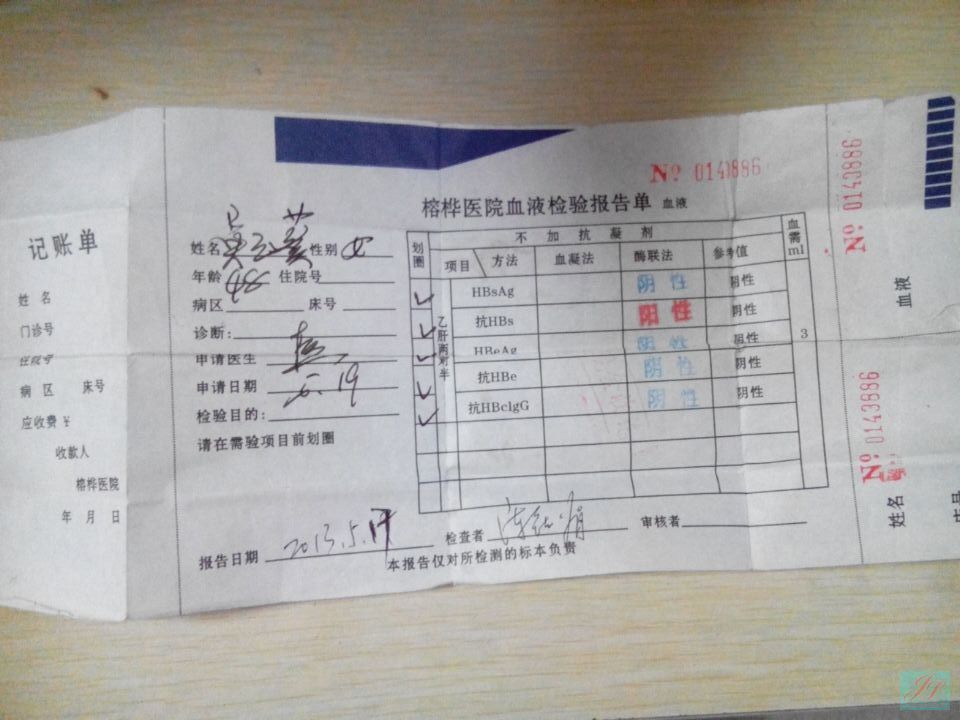 记账单
姓名
门诊号
住院号
病区 床号
应收费 ¥
收款人
榕桦医院
年 月 日
№ 0143886
榕桦医院血液检验报告单 血液
姓名 性别 女
年龄 48 住院号
病区 床号
诊断:
申请医生
申请日期 5.19
检验目的:
请在需验项目前划圈
划圈 不加抗凝剂 血需ml
项目 方法 血凝法 酶联法 参考值
乙肝两对半
HBsAg 阴性 阴性
抗HBs 阳性 阴性
HBeAg 阴性 阴性
抗HBe 阴性 阴性
抗HBcIgG 阴性 阴性
3
报告日期 2013.5.19 检查者 审核者
本报告仅对所检测的标本负责
№ 0143886
血液
№ 0143886
姓名